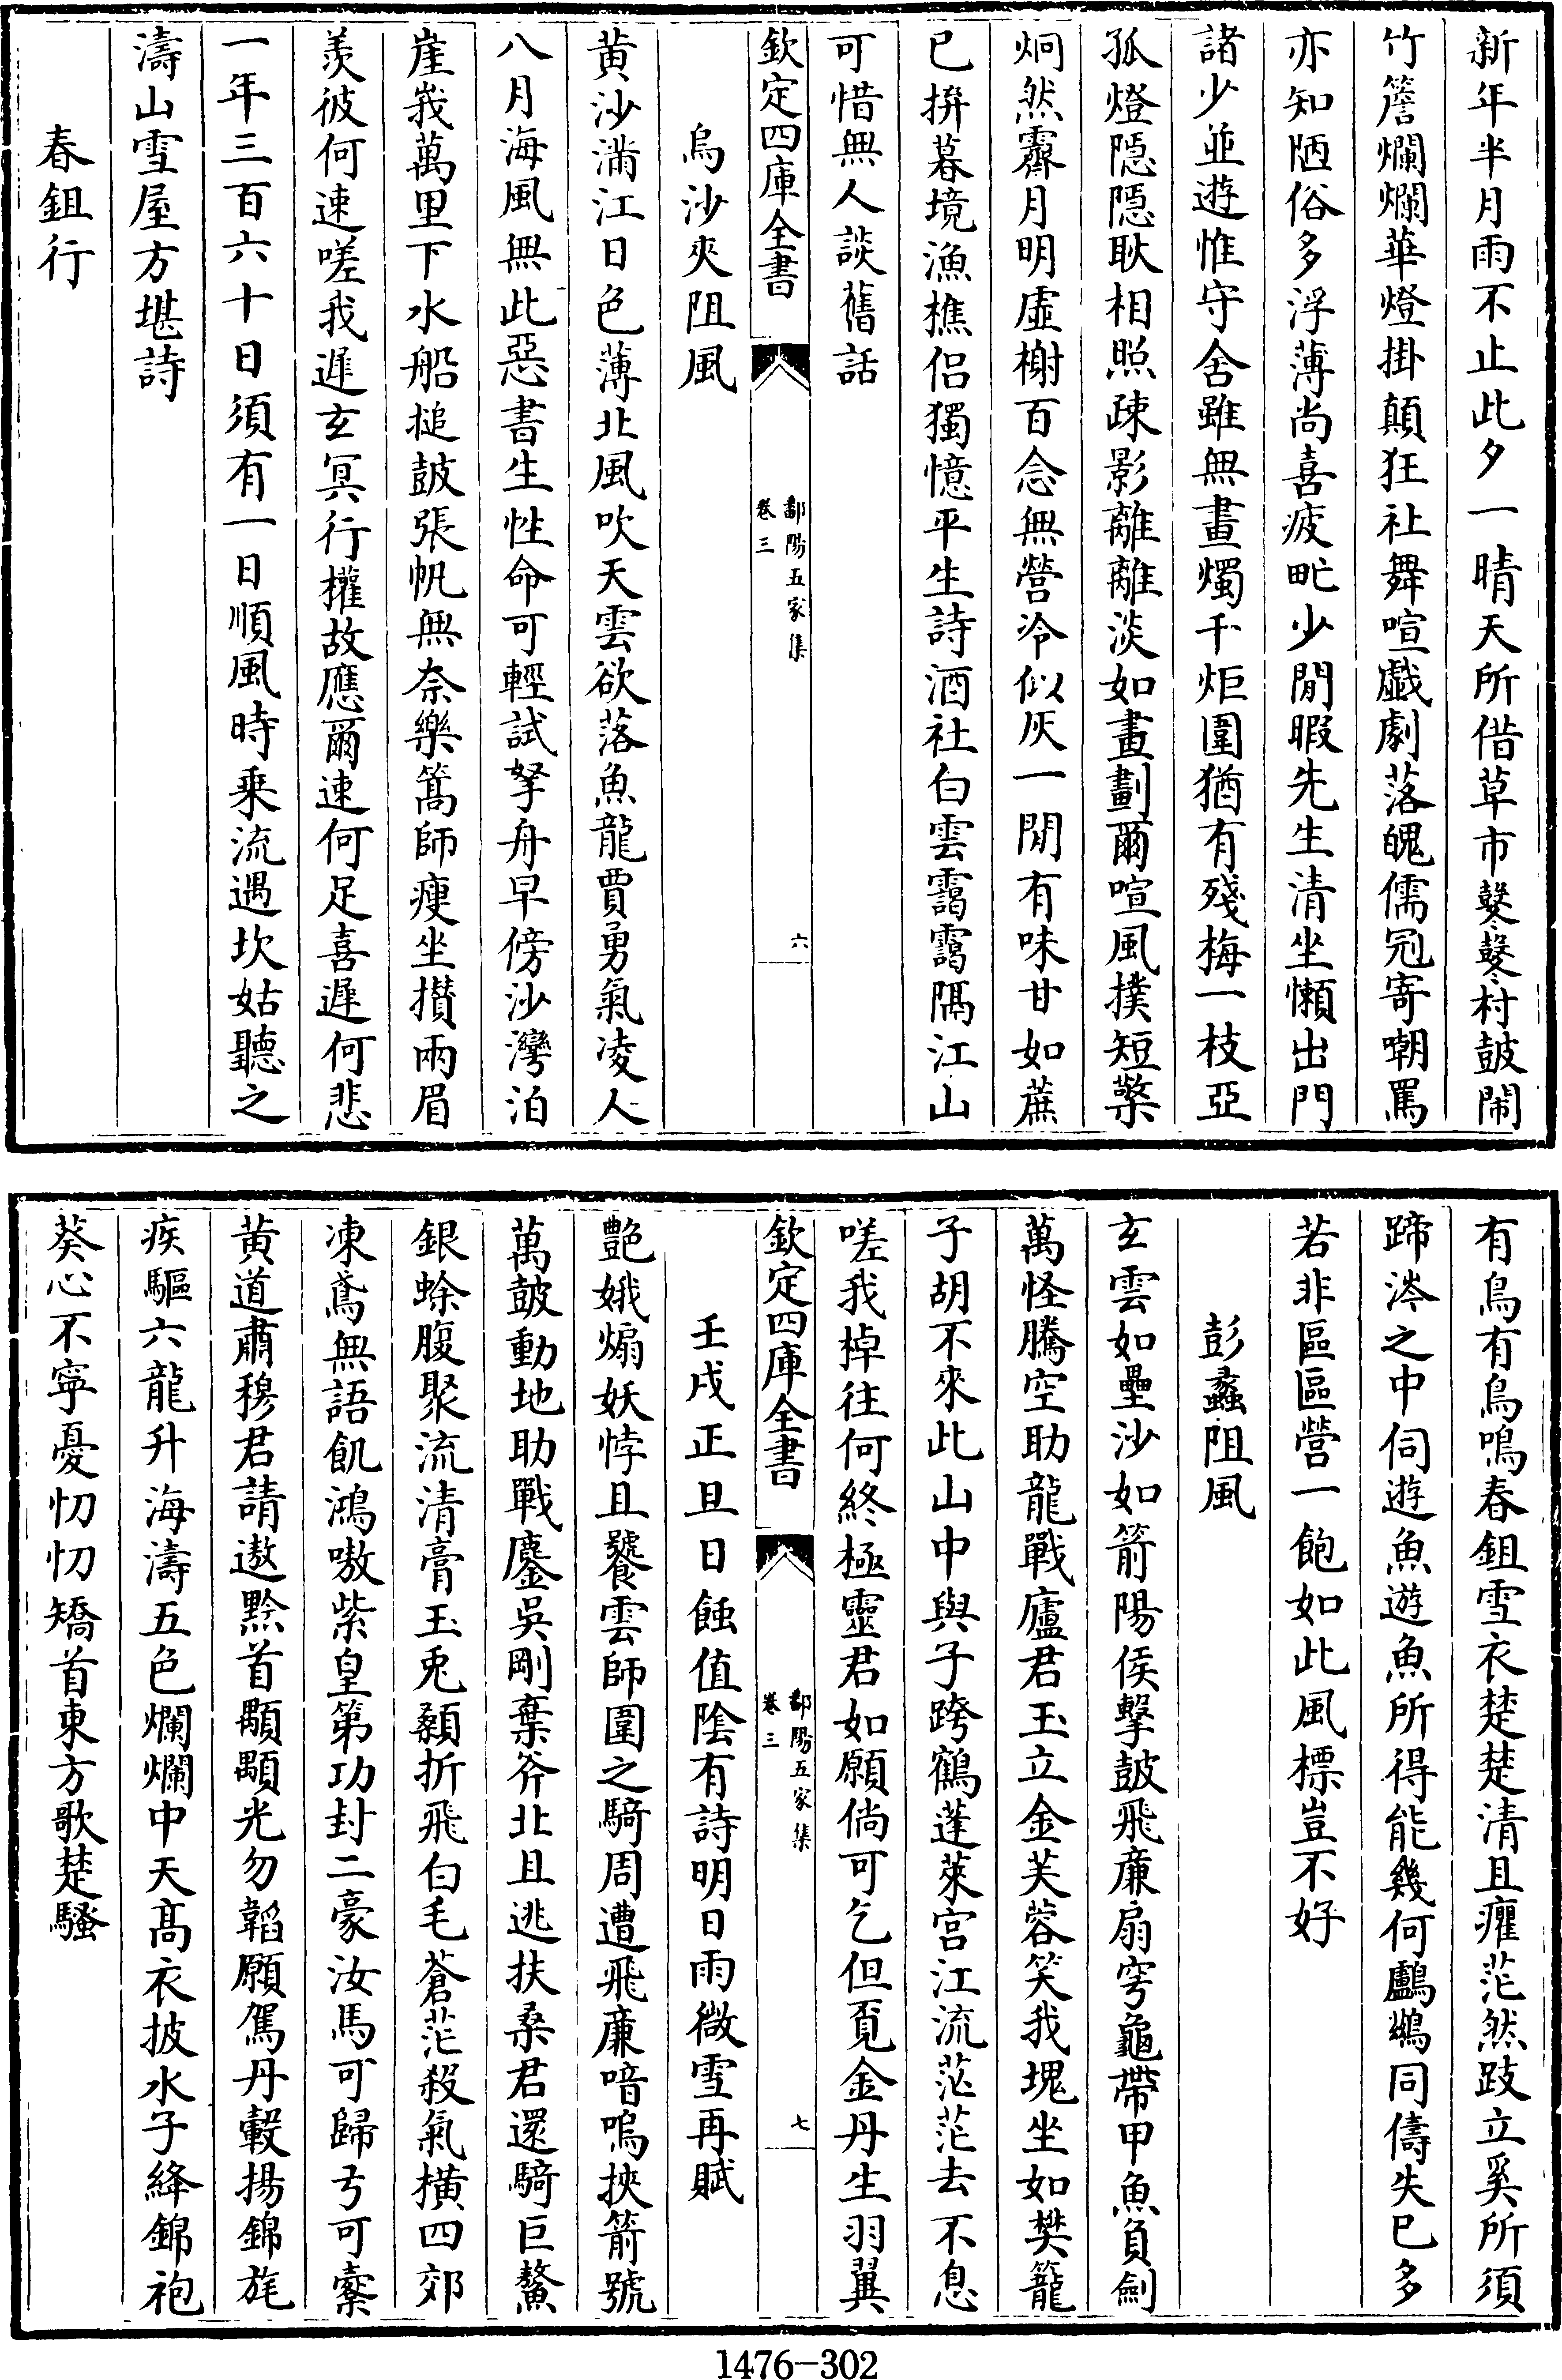 新年半月雨不止此夕一晴天所借草市鼕鼕村鼓鬧
竹簷爛爛華燈掛顛狂社舞喧戯劇落魄儒冠寄嘲罵
亦知陋俗多浮薄尚喜疲甿少閒暇先生清坐懶出門
諸少並遊惟守舍雖無畫燭千炬圍猶有殘梅一枝亞
孤燈隠隠耿相照疎影離離淡如畫劃爾喧風撲短檠
炯然霽月明虛榭百念無營冷似灰一閒有味甘如蔗
已拚暮境漁樵侣獨憶平生詩酒社白雲靄靄隔江山
可惜無人談舊話
欽定四庫全書
鄱陽五家集
卷三
六
烏沙夾阻風
黄沙滿江日色薄北風吹天雲欲落魚龍賈勇氣凌人
八月海風無此惡書生性命可輕試拏舟早傍沙灣泊
崖峩萬里下水船搥鼓張帆無奈樂篙師瘦坐攢兩眉
羨彼何速嗟我遲玄冥行權故應爾速何足喜遲何悲
一年三百六十日須有一日順風時乗流遇坎姑聽之
濤山雪屋方堪詩
春鉏行
有鳥有鳥鳴春鉏雪衣楚楚清且癯茫然跂立奚所須
蹄涔之中伺遊魚遊魚所得能幾何鸕鷀同儔失已多
若非區區營一飽如此風標豈不好
彭蠡阻風
玄雲如壘沙如箭陽侯擊鼓飛廉扇穹龜帶甲魚負劍
萬怪騰空助龍戰廬君玉立金芙蓉笑我塊坐如樊籠
子胡不來此山中與子跨鶴蓬萊宫江流茫茫去不息
嗟我棹往何終極靈君如願倘可乞但覔金丹生羽翼
欽定四庫全書
鄱陽五家集
卷三
七
壬戌正旦日蝕值陰有詩明日雨微雪再賦
艷娥煽妖悖且饕雲師圍之騎周遭飛廉喑嗚挾箭號
萬鼓動地助戰鏖吳剛棄斧北且逃扶桑君還騎巨鰲
銀蜍腹聚流清膏玉兎顙折飛白毛蒼茫殺氣横四郊
凍鳶無語飢鴻嗷紫皇第功封二豪汝馬可歸弓可櫜
黄道肅穆君請遨黔首顒顒光勿韜願駕丹轂揚錦旄
疾驅六龍升海濤五色爛爛中天髙衣披水子絳錦袍
葵心不寧憂忉忉矯首東方歌楚騷
1476-302